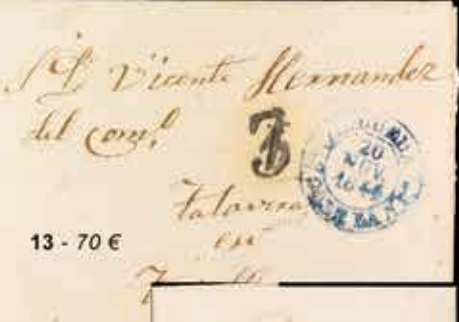 A D. Vicente Hernandez
del com.º
3
20
NOV
Talavera
en
13 - 70 €